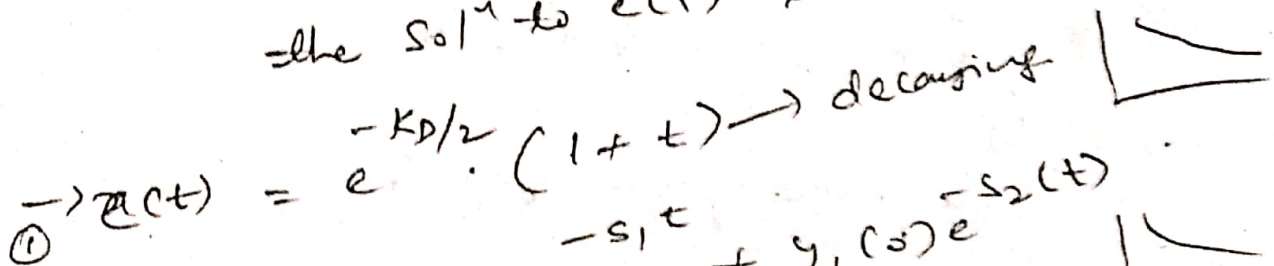 the Solⁿ to
→ e(t) = e^{-KD/2} . (1 + t) → decaying
①
-s₁t + y₁(0)e^{-s₂(t)}